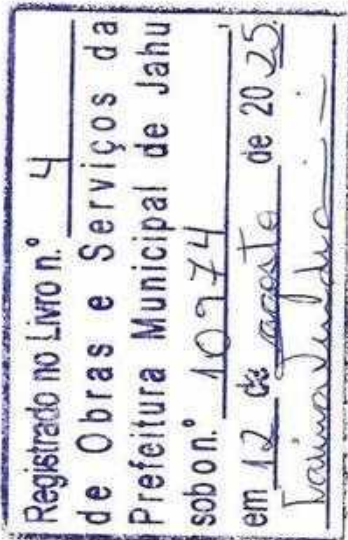 Registrado no Livro n.º 4
de Obras e Serviços da
Prefeitura Municipal de Jahu
sob o n.º 10974
em 12 de agosto de 2025